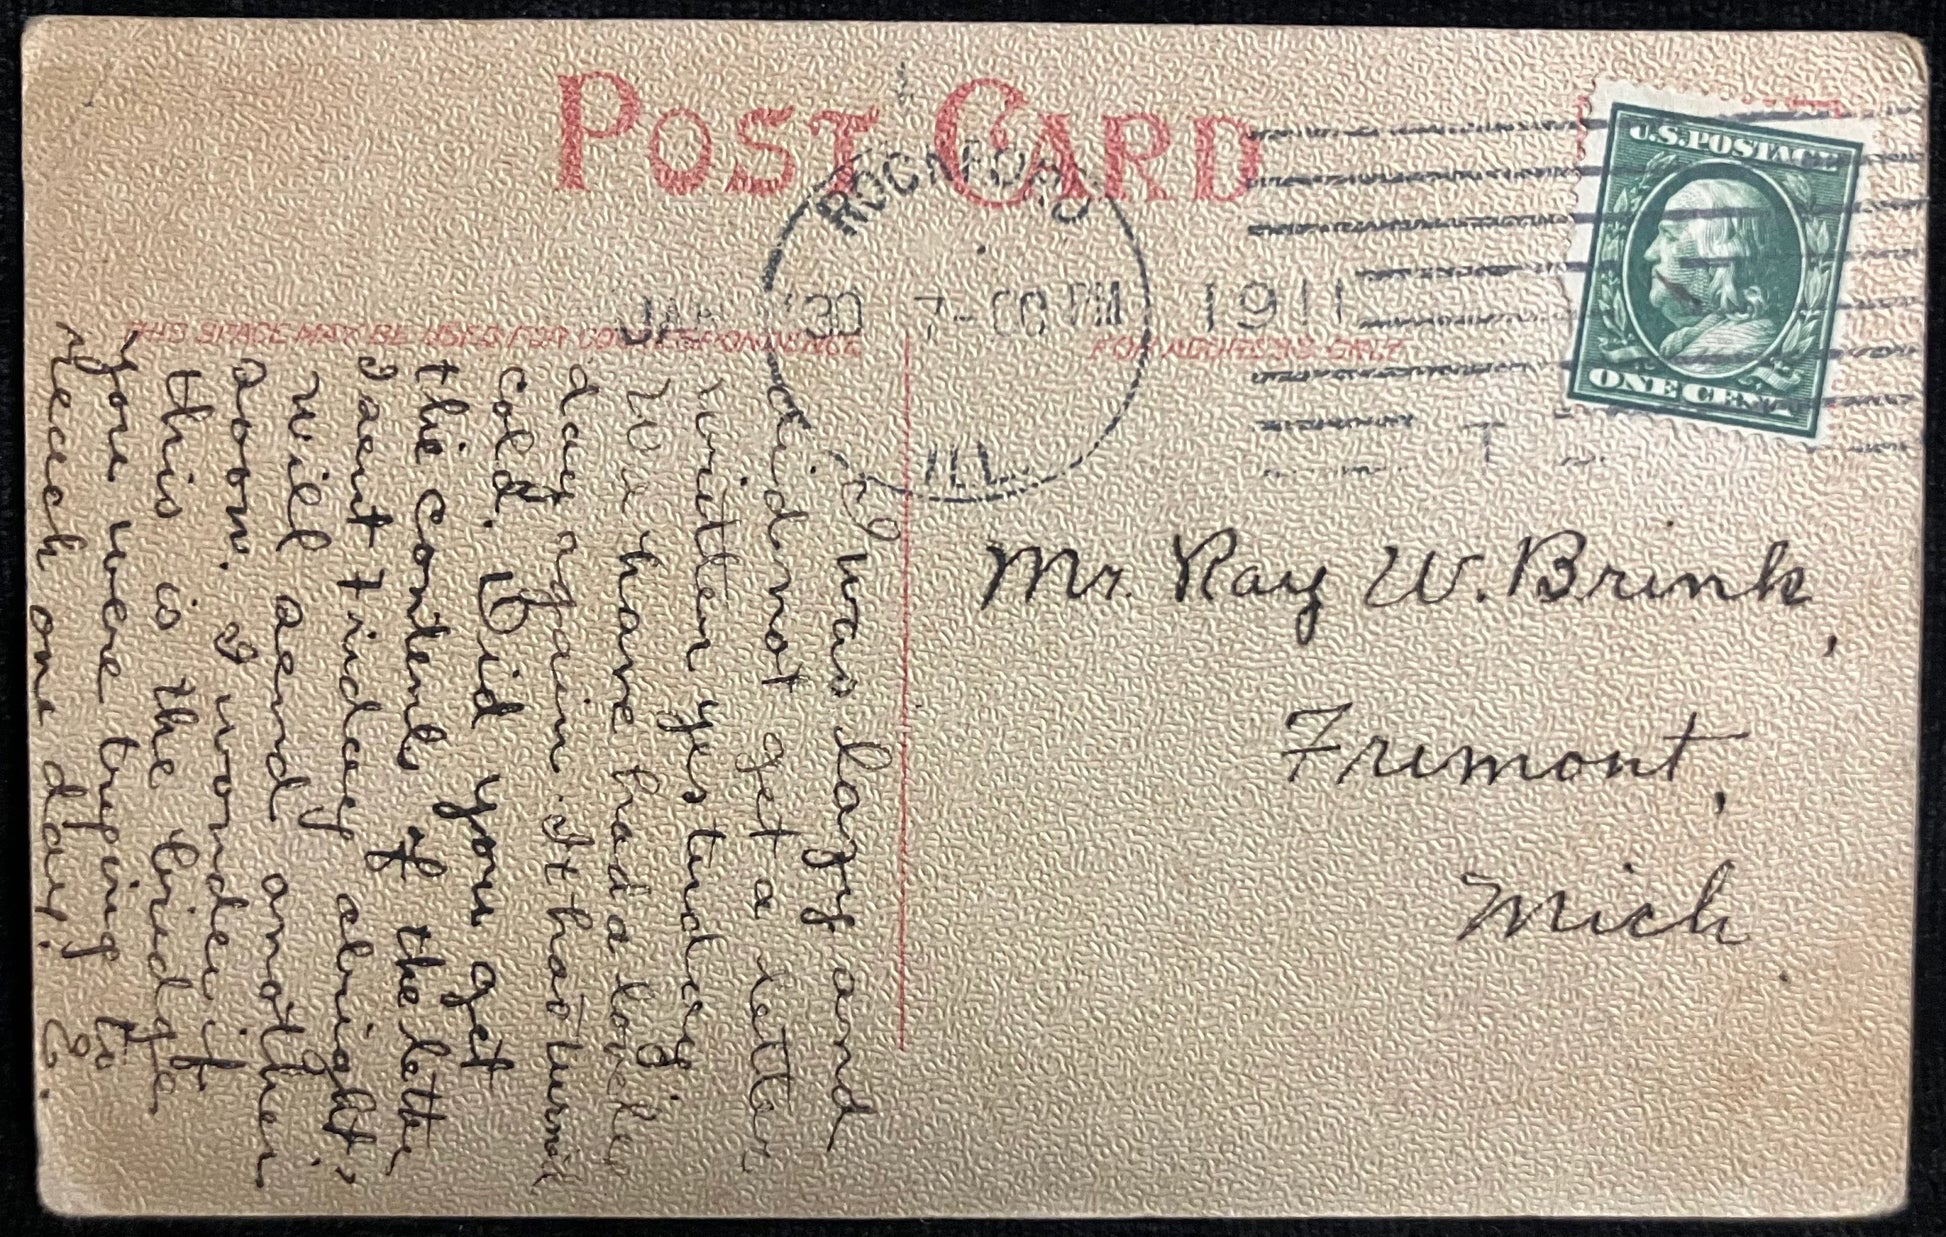 POST CARD
ROCKFORD
JAN 30 7-00 PM 1911
ILL.
U.S. POSTAGE
ONE CENT
THIS SPACE MAY BE USED FOR CORRESPONDENCE
FOR ADDRESS ONLY
I was lazy and
did not get a letter
written yesterday.
We have had a lovely
day again. It has turned
cold. Did you get
the contents of the letter
I sent Friday alright,
will send another
soon. I wonder if
this is the bridge
you were trying to
reach one day. E.
Mr. Ray W. Brink,
Fremont,
Mich.